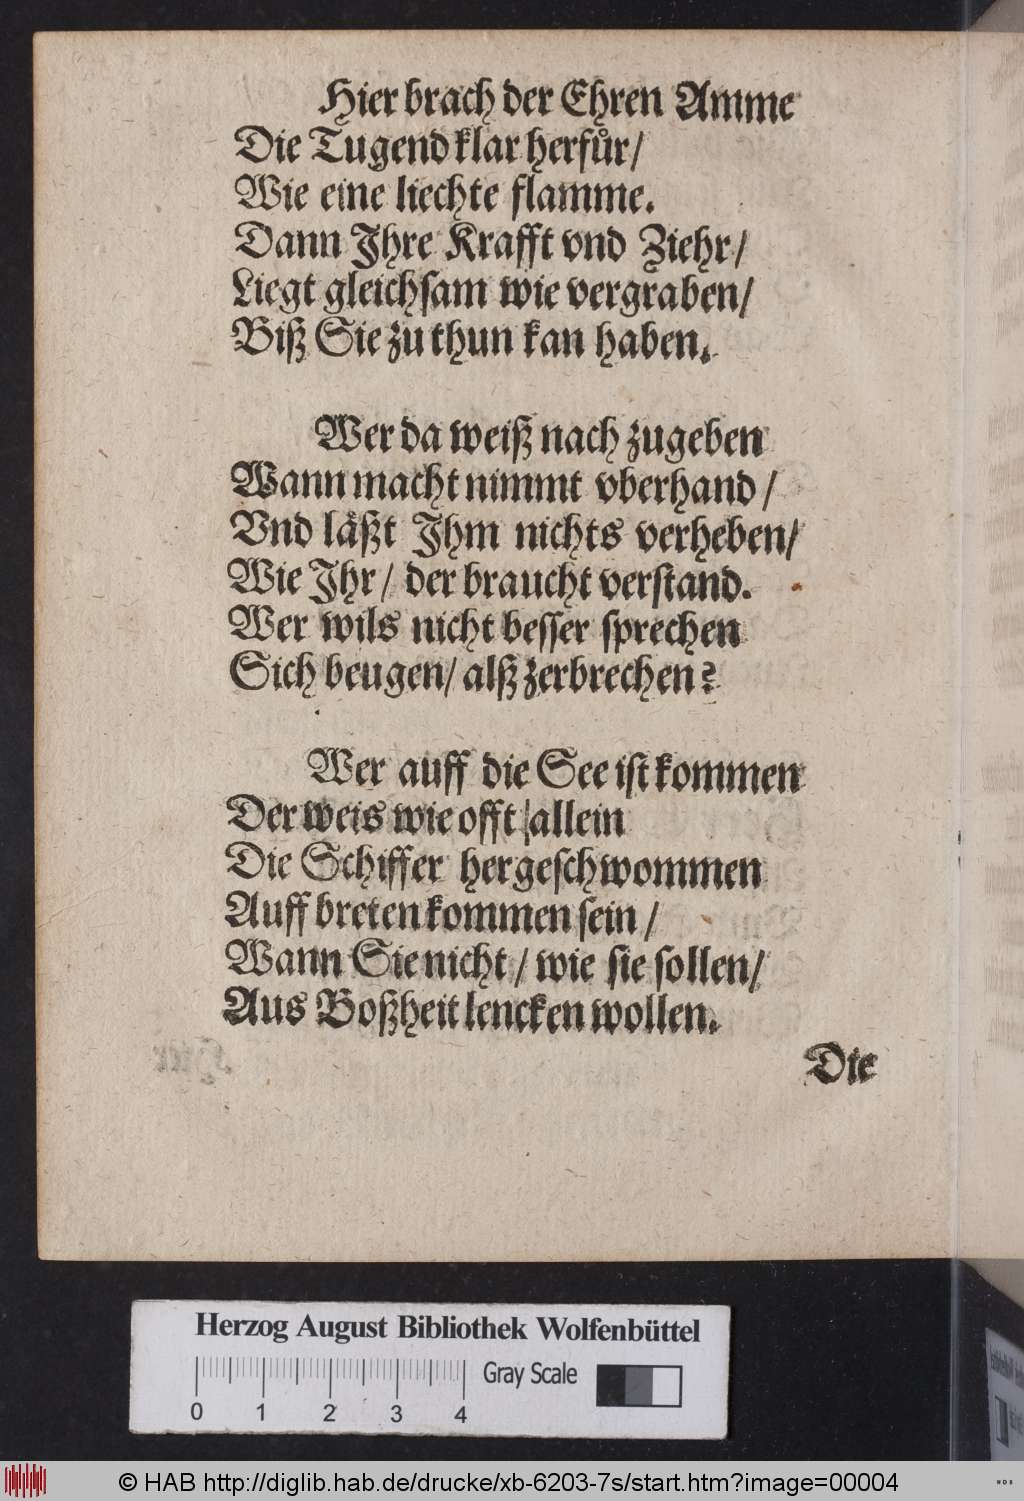 Hier brach der Ehren Amme
Die Tugend klar herfuͤr/
Wie eine liechte flamme.
Dann Ihre Krafft vnd Ziehr/
Liegt gleichsam wie vergraben/
Biß Sie zu thun kan haben.
Wer da weiß nach zugeben
Wann macht nimmt vberhand/
Vnd läßt Ihm nichts verheben/
Wie Ihr/ der braucht verstand.
Wer wils nicht besser sprechen
Sich beugen/ alß zerbrechen?
Wer auff die See ist kommen
Der weis wie offt/allein
Die Schiffer hergeschwommen
Auff breten kommen sein/
Wann Sie nicht/ wie sie sollen/
Aus Boßheit lencken wollen.
Die
Herzog August Bibliothek Wolfenbüttel
Gray Scale
0 1 2 3 4
© HAB http://diglib.hab.de/drucke/xb-6203-7s/start.htm?image=00004